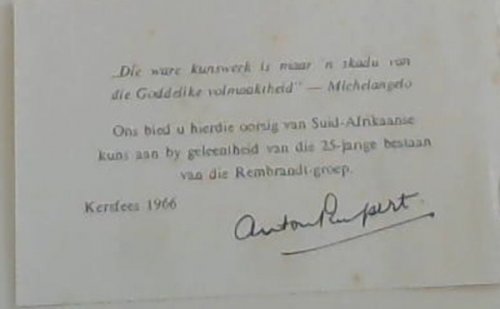 „Die ware kunswerk is maar 'n skadu van
die Goddelike volmaaktheid" — Michelangelo
Ons bied u hierdie oorsig van Suid-Afrikaanse
kuns aan by geleentheid van die 25-jarige bestaan
van die Rembrandt-groep.
Kersfees 1966
Anton Rupert.